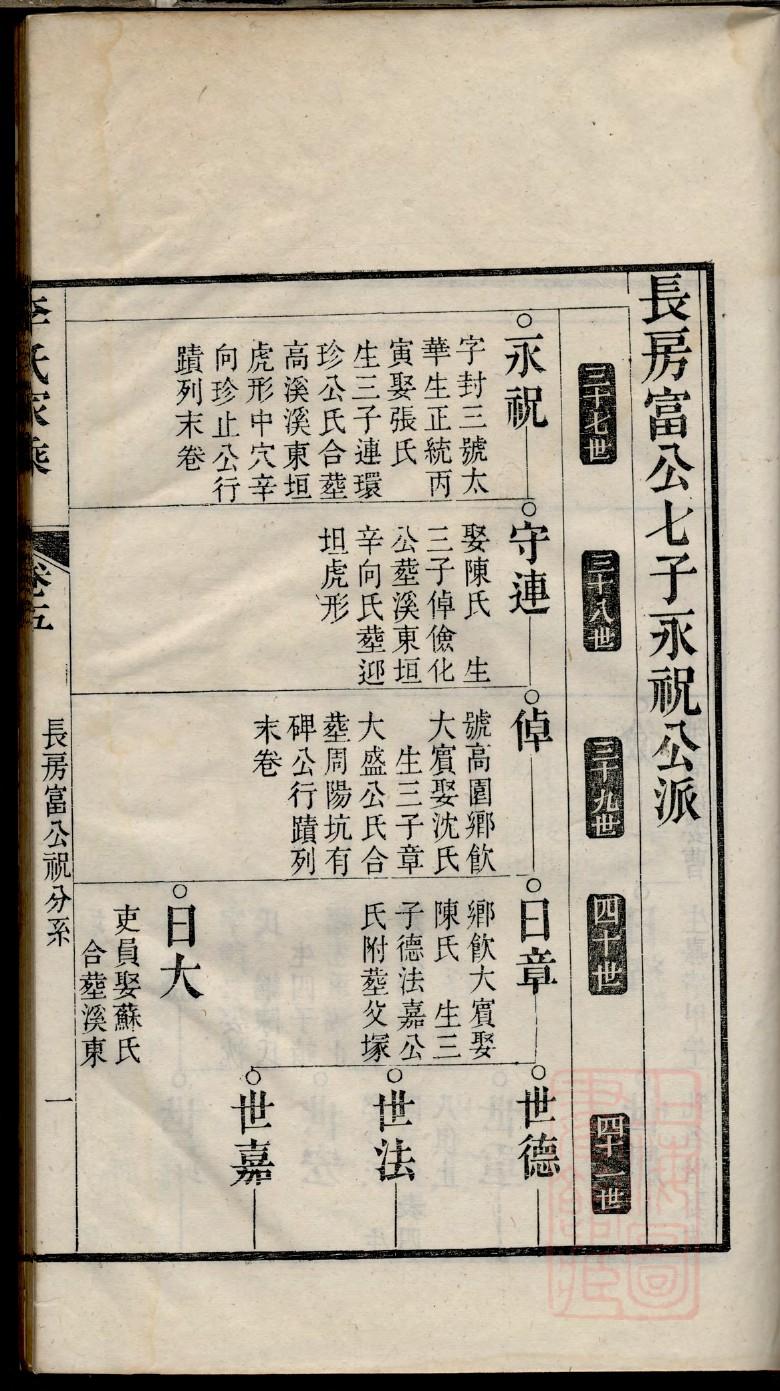 長房富公七子永祝公派
三十七世
三十八世
三十九世
四十世
四十一世
永祝
字封三號太
華生正統丙
寅娶張氏
生三子連環
珍公氏合塟
高溪溪東垣
虎形中穴辛
向珍止公行
蹟列末卷
守連
娶陳氏 生
三子倬儉化
公塟溪東垣
辛向氏塟迎
坦虎形
倬
號高園鄉飲
大賓娶沈氏
生三子章
大盛公氏合
塟周陽坑有
碑公行蹟列
末卷
日章
鄉飲大賓娶
陳氏 生三
子德法嘉公
氏附塟父塚
日大
吏員娶蘇氏
合塟溪東
世德
世法
世嘉
李氏家乘
卷五
長房富公祝分系
一